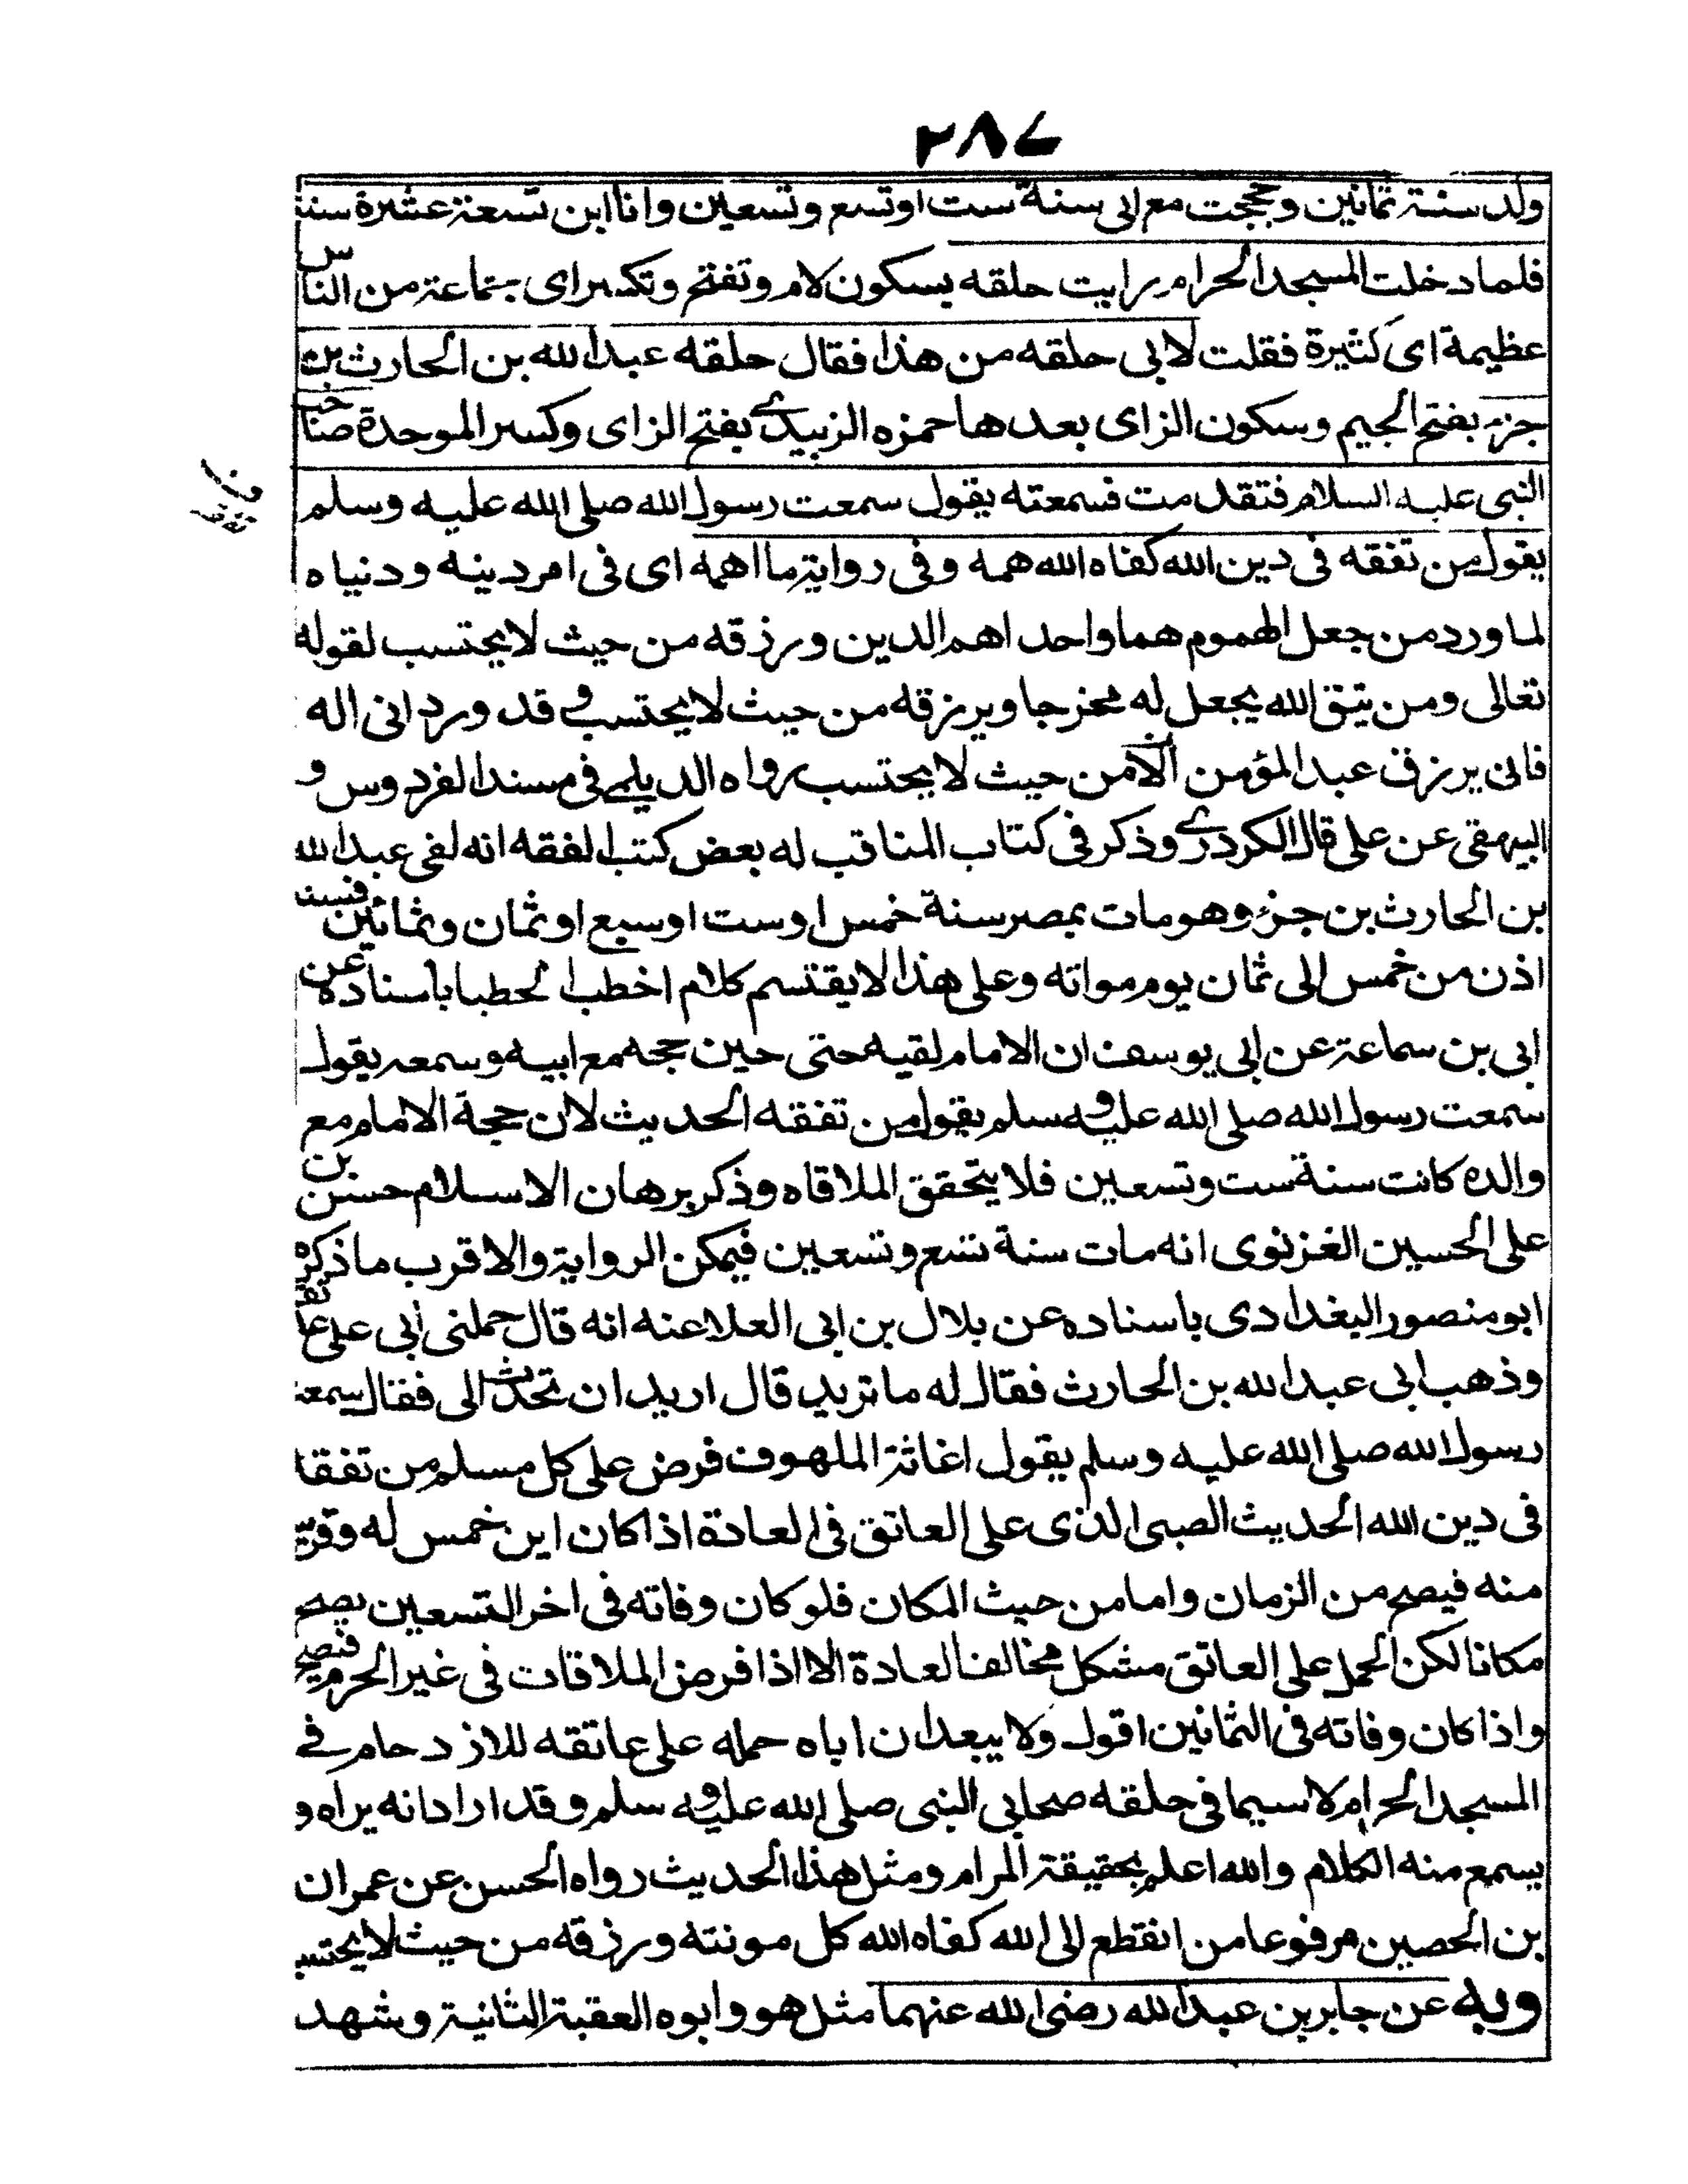 ٢٨٧
ولد سنة ثمانين وحججت مع ابى سنة ست اوتسع وتسعين وانا ابن تسعة عشرة سنة
فلما دخلت المسجد الحرام رايت حلقه بسكون لام وتفتح وتكسر اى جماعة من الناس
عظيمة اى كثيرة فقلت لابى حلقه من هذا فقال حلقه عبد الله بن الحارث بن
جزء بفتح الجيم وسكون الزاى بعدها حمزه الزبيدى بفتح الزاى وكسر الموحدة صاحب
النبى عليه السلام فتقدمت فسمعته يقول سمعت رسول الله صلى الله عليه وسلم
يقول من تفقه فى دين الله كفاه الله همه وفى رواية ما اهمه اى فى امر دينه ودنياه
لما ورد من جعل الهموم هما واحد اهم الدين ورزقه من حيث لا يحتسب لقوله
تعالى ومن يتق الله يجعل له مخرجا ويرزقه من حيث لا يحتسب و قد ورد انى اله
فانى يرزق عبد المؤمن الا من حيث لا يحتسب رواه الديلمى فى مسند الفردوس و
البيهقى عن على قال الكردرى وذكر فى كتاب المناقب له بعض كتب الفقه انه لقى عبد الله
بن الحارث بن جزء وهو مات بمصر سنة خمس او ست او سبع او ثمان وثمانين فسنه
اذن من خمس الى ثمان يوم مواته وعلى هذا لا يقتسم كلام اخطب لحطبا باسناده عن
ابى بن سماعة عن ابى يوسف ان الامام لقيه حتى حين حجه مع ابيه وسمعه يقول
سمعت رسول الله صلى الله عليه وسلم يقول من تفقه الحديث لان حجة الامام مع
والده كانت سنة ست وتسعين فلا يتحقق الملاقاه وذكر برهان الاسلام حسن بن
على الحسين الغزنوى انه مات سنة تسع وتسعين فيمكن الرواية والاقرب ما ذكره
ابو منصور البغدادى باسناده عن بلال بن ابى العلا عنه انه قال حملنى أبى على عاتقه
وذهب ابى عبد الله بن الحارث فقال له ما تريد قال اريد ان تحدث الى فقال سمعت
رسول الله صلى الله عليه وسلم يقول اغاثة الملهوف فرض على كل مسلم من تفقه
فى دين الله الحديث الصبى الذى على العاتق فى العادة اذا كان ابن خمس له وقريب
منه فيصح من الزمان واما من حيث المكان فلو كان وفاته فى اخر التسعين يصح
مكانا لكن الحمل على العاتق مشكل مخالف العادة الا اذا فرض الملاقات فى غير الحرم فتصح
واذا كان وفاته فى الثمانين اقول ولا يبعد ان اباه حمله على عاتقه للازدحام فى
المسجد الحرام لا سيما فى حلقه صحابى النبى صلى الله عليه وسلم وقد اراد انه يراه و
يسمع منه الكلام والله اعلم بحقيقة المرام ومثل هذا الحديث رواه الحسن عن عمران
بن الحصين مرفوعا من انقطع الى الله كفاه الله كل مونته ورزقه من حيث لا يحتسب
وبه عن جابر بن عبد الله رضى الله عنهما مثل هو وابوه العقبة الثانية وشهد